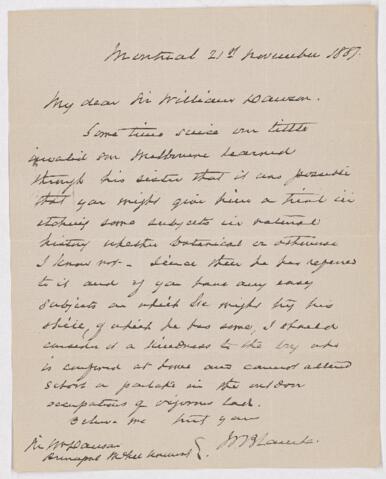 Montreal 21st November 1887.
My dear Sir William Dawson.
Some time since our little
invalid son Melbourne learned
through his sister that it was possible
that you might give him a trial in
etching some subjects in natural
history whether botanical or otherwise
I know not - Since then he has referred
to it and if you have any easy
subjects on which he might try his
skill, of which he has some, I should
consider it a kindness to the boy who
is confined at home and cannot attend
school or partake in the outdoor
occupations of vigorous lads.
Believe me truly yours
Sir Wm Dawson
Principal McGill University